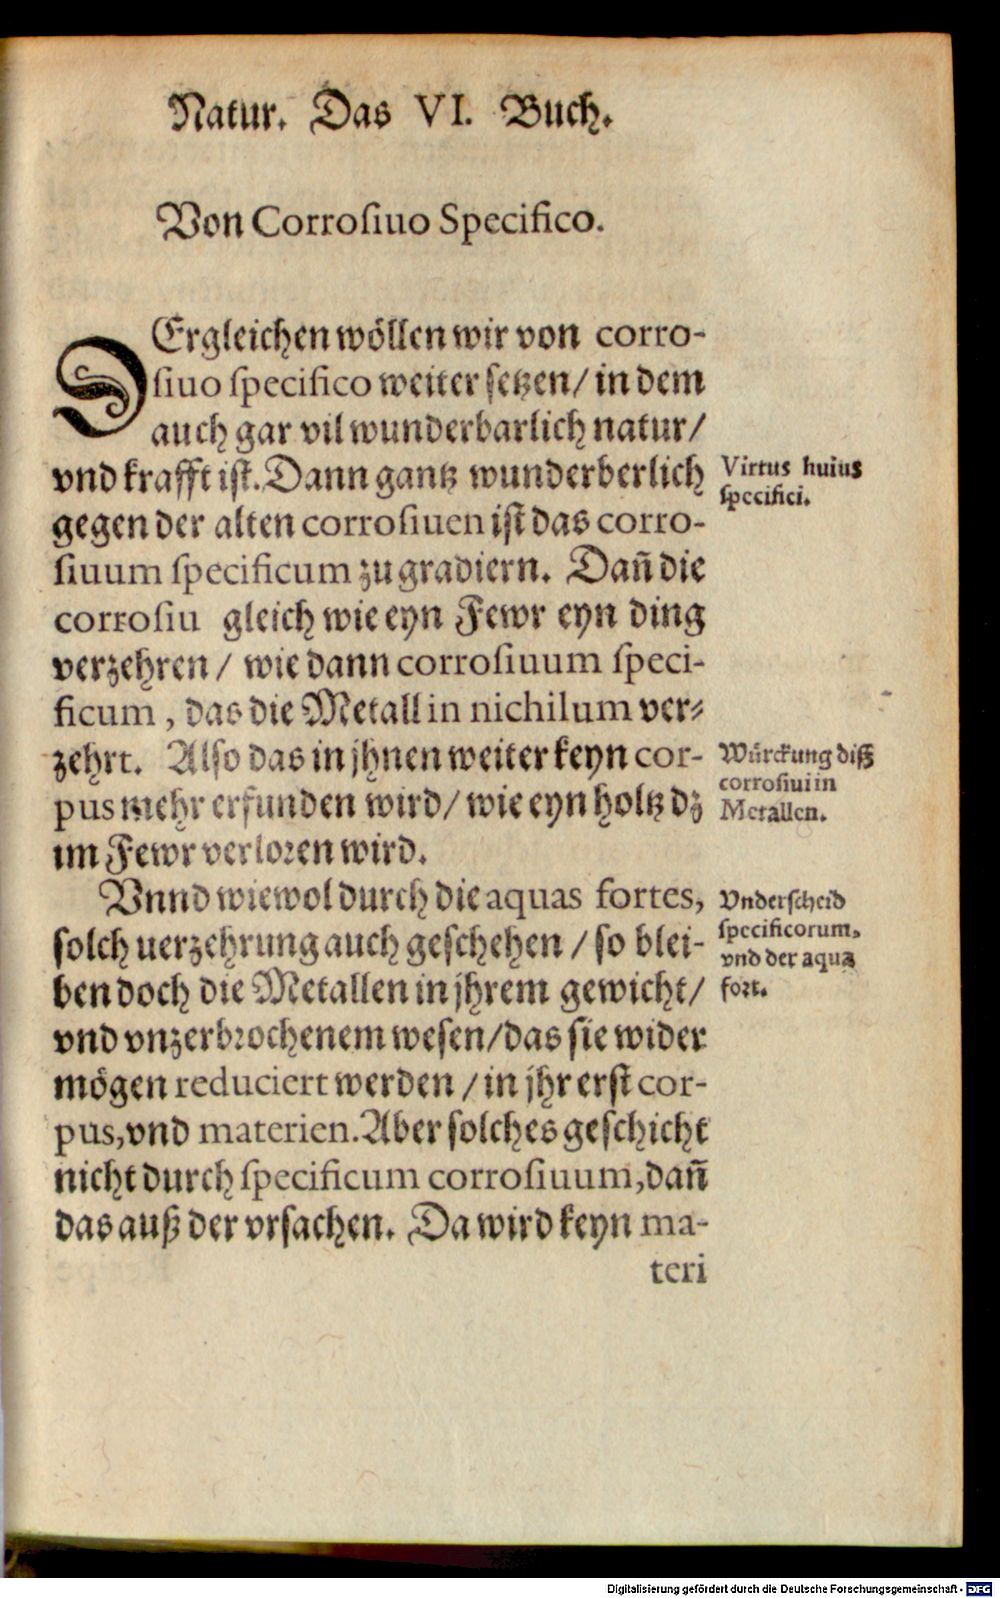 Natur. Das VI. Buch.
Von Corroſiuo Specifico.
DErgleichen wöllen wir von corro-
ſiuo ſpecifico weiter ſetzen/ in dem
auch gar vil wunderbarlich natur/
vnd krafft iſt. Dann gantz wunderberlich
gegen der alten corroſiuen iſt das corro-
ſiuum ſpecificum zu gradiern. Dañ die
corroſiu gleich wie eyn Fewr eyn ding
verzehren/ wie dann corroſiuum ſpeci-
ficum, das die Metall in nichilum ver-
zehrt. Alſo das in jhnen weiter keyn cor-
pus mehr erfunden wird/ wie eyn holtz dz
im Fewr verloren wird.
Vnnd wiewol durch die aquas fortes,
ſolch uerzehrung auch geſchehen/ ſo blei-
ben doch die Metallen in jhrem gewicht/
vnd vnzerbrochenem weſen/das ſie wider
mögen reduciert werden/in jhr erſt cor-
pus,vnd materien.Aber ſolches geſchicht
nicht durch ſpecificum corroſiuum,dañ
das auß der vrſachen. Da wird keyn ma-
teri
Virtus huius
ſpecifici.
Würckung diſſ
corroſiui in
Metallen.
Vnderſcheid
ſpecificorum,
vnd der aqua
fort.
Digitalisierung gefördert durch die Deutsche Forschungsgemeinschaft - DFG